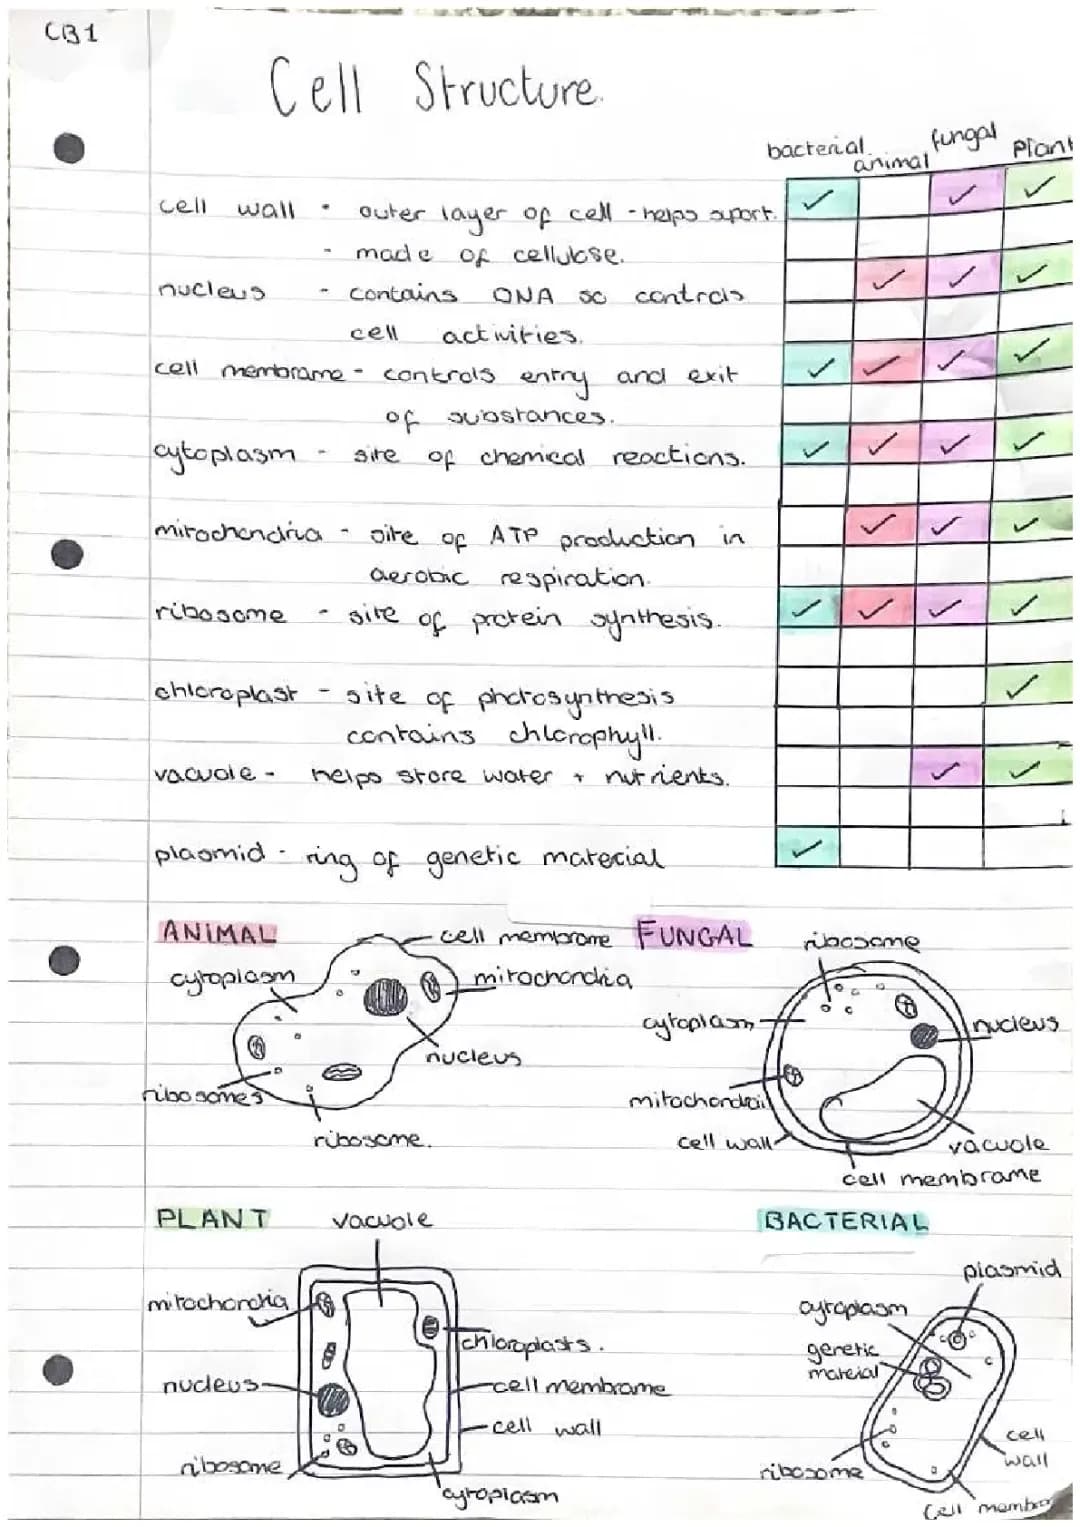 CB1
Cell Structure.
bacterial animal fungal Plant
cell wall - outer layer of cell - helps suport. ✓ ✓ ✓
- made of cellulose.
nucleus - contains DNA so controls ✓ ✓ ✓
cell activities.
cell membrame - controls entry and exit ✓ ✓ ✓ ✓
of substances.
cytoplasm - site of chemical reactions. ✓ ✓ ✓ ✓
mitochondria - site of ATP production in ✓ ✓ ✓
aerobic respiration.
ribosome - site of protein synthesis. ✓ ✓ ✓ ✓
chloroplast - site of photosynthesis ✓
contains chlorophyll.
vacuole - helps store water + nutrients. ✓ ✓
plasmid - ring of genetic material ✓
ANIMAL
cell membrame
cytoplasm
mitochondria
nucleus
ribosomes
ribosome.
FUNGAL
ribosome
cytoplasm
nucleus
mitochondrai
cell wall
vacuole
cell membrame
PLANT
vacuole
mitochondria
chloroplasts.
nucleus
cell membrame
cell wall
ribosome
cytoplasm
BACTERIAL
plasmid
cytoplasm
genetic
mateial
cell
wall
ribosome
Cell membra